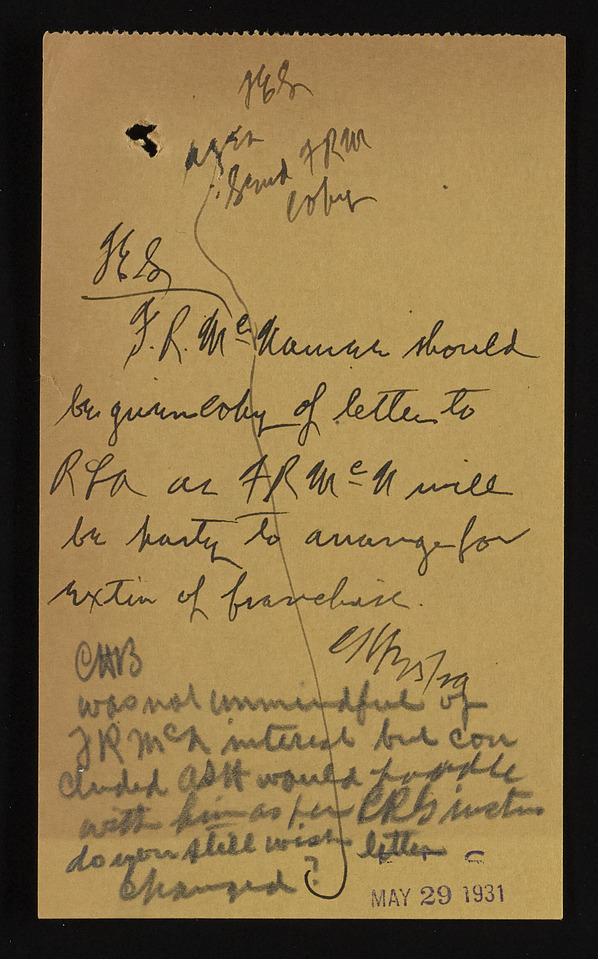 JES
Send FRM
copy
JES
F.R. McNamee should
be given copy of letter to
RLA as FR McN will
be party to arrange for
extin of franchise.
CHB 5/29
CHB
was not unmindful of
FR McN interest but con
cluded ASH would handle
with him as per CRG instns
do you still wish letter
changed?
MAY 29 1931